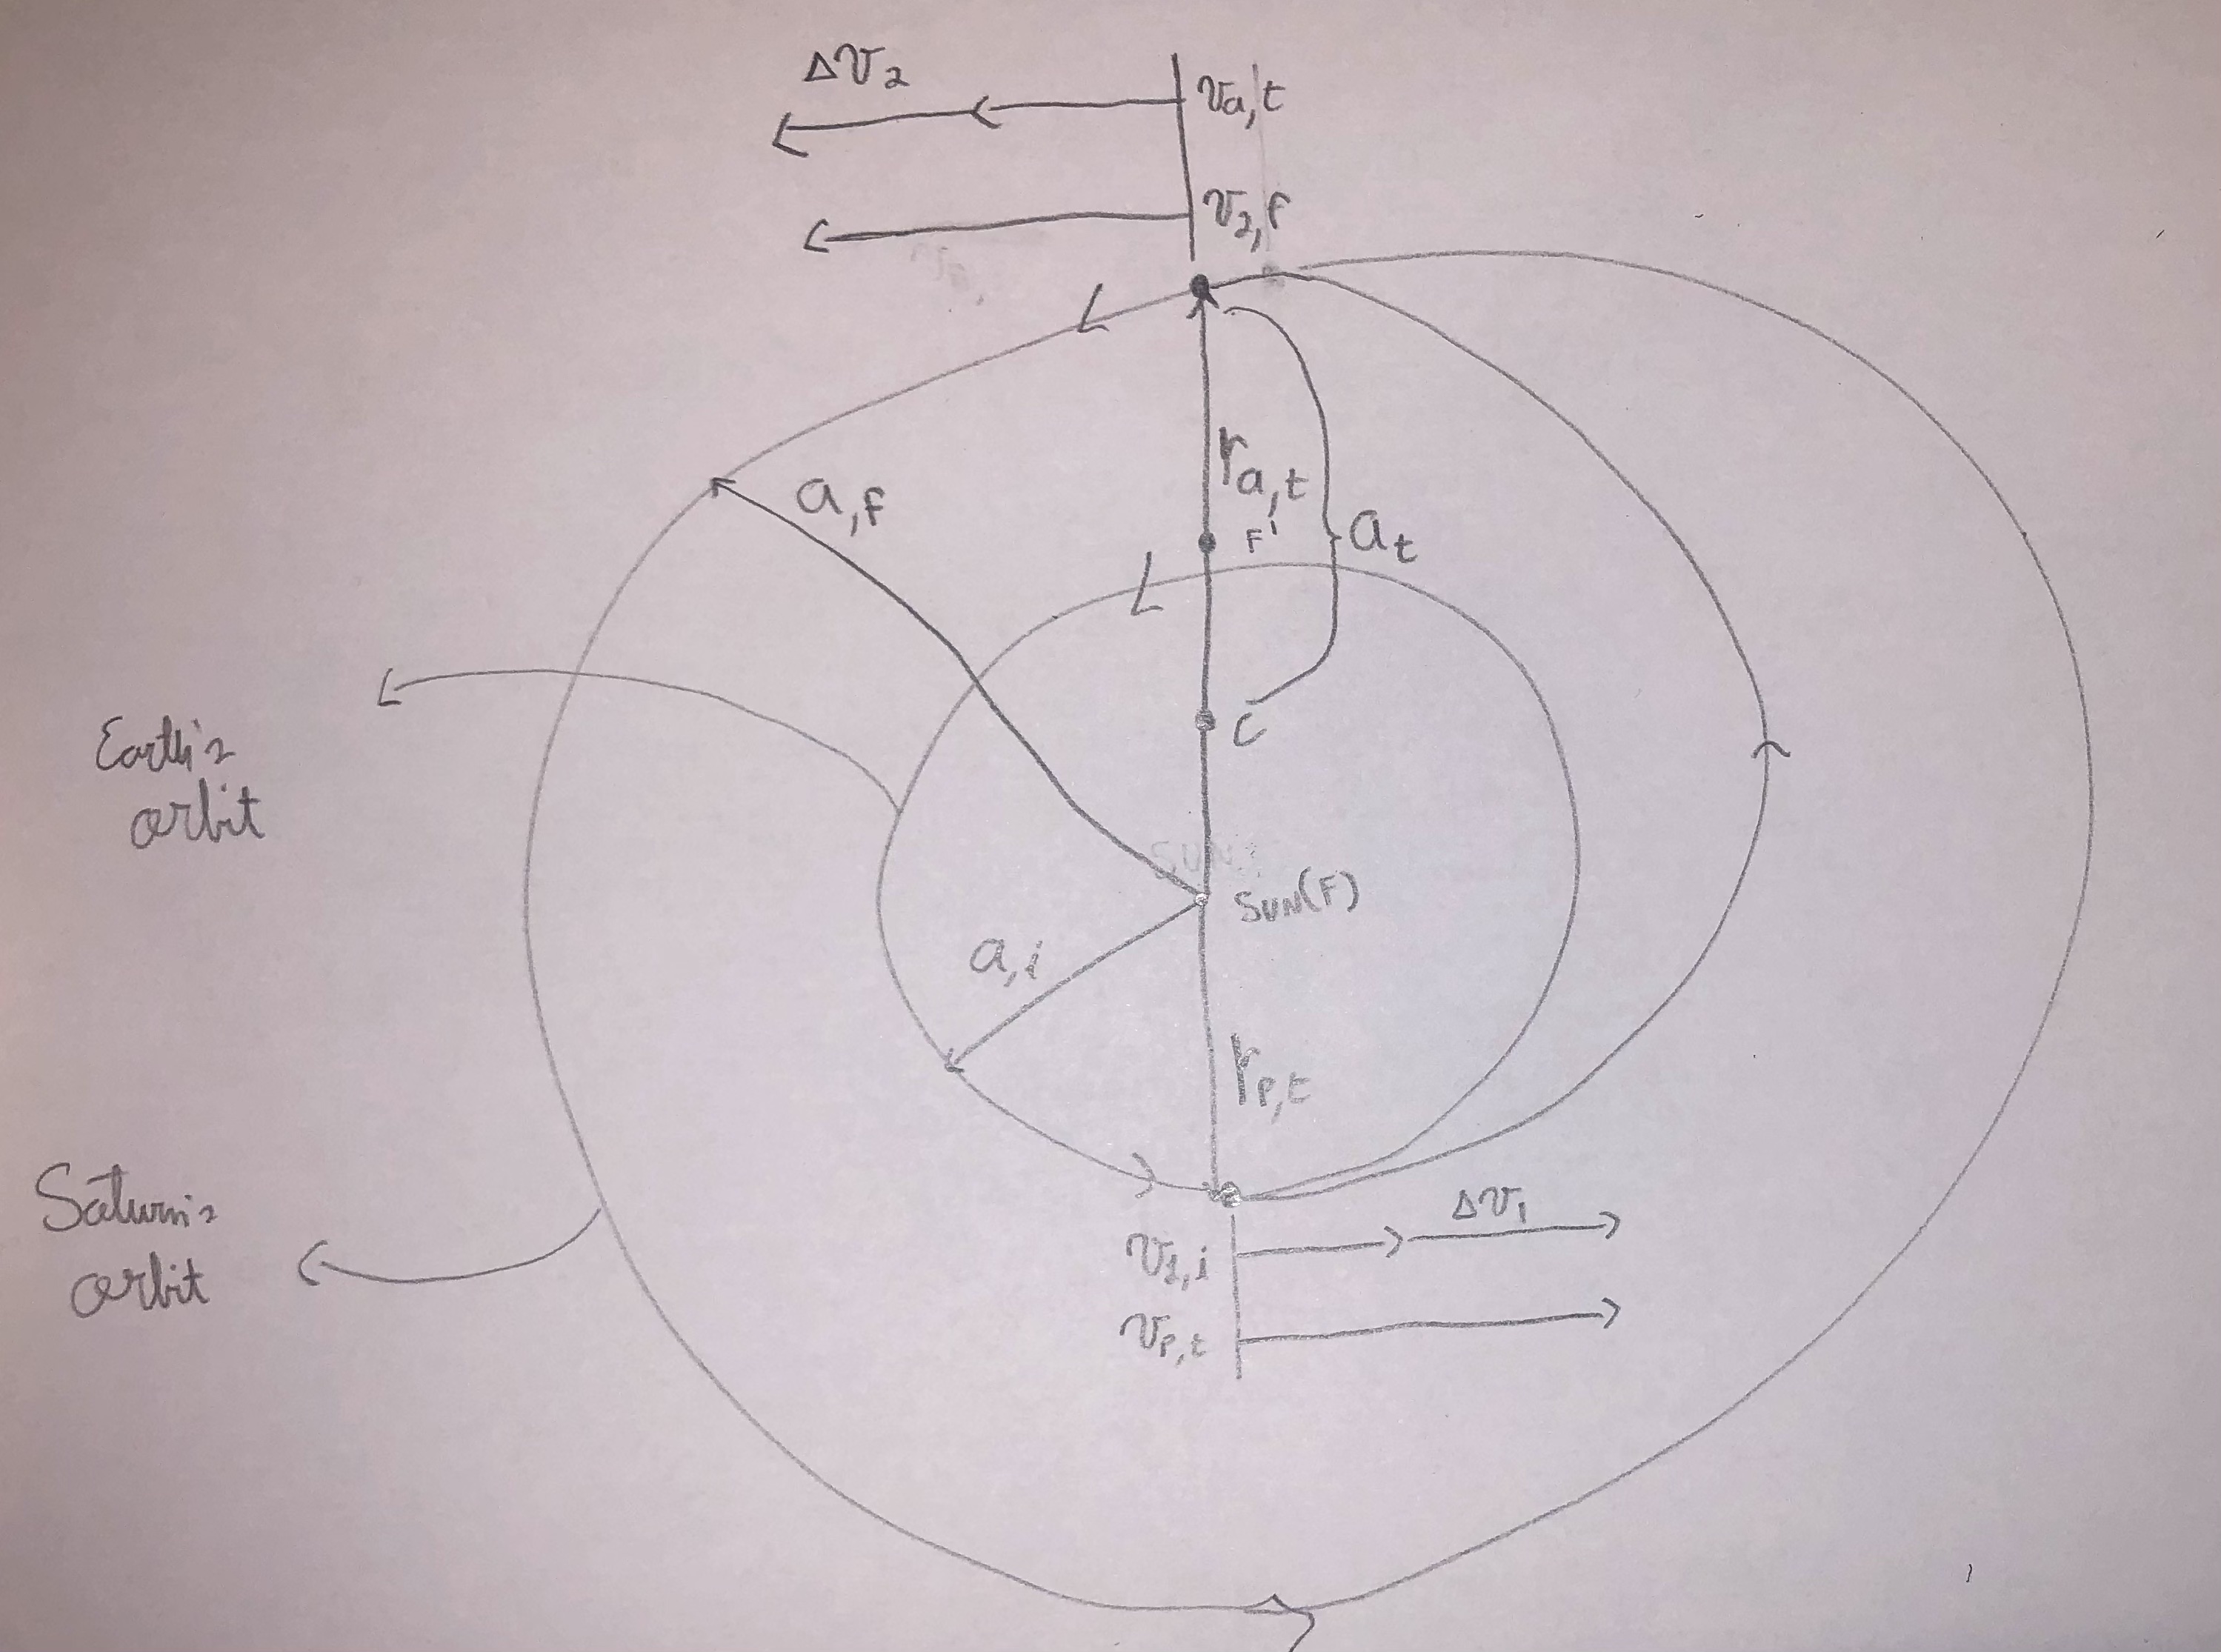 ΔV₂
Va,t
V₂,f
ra,t
a,f
F'
at
C
Earth's
orbit
SUN
SUN(F)
a,i
rp,t
Saturn's
orbit
ΔV₁
V₁,i
Vp,t